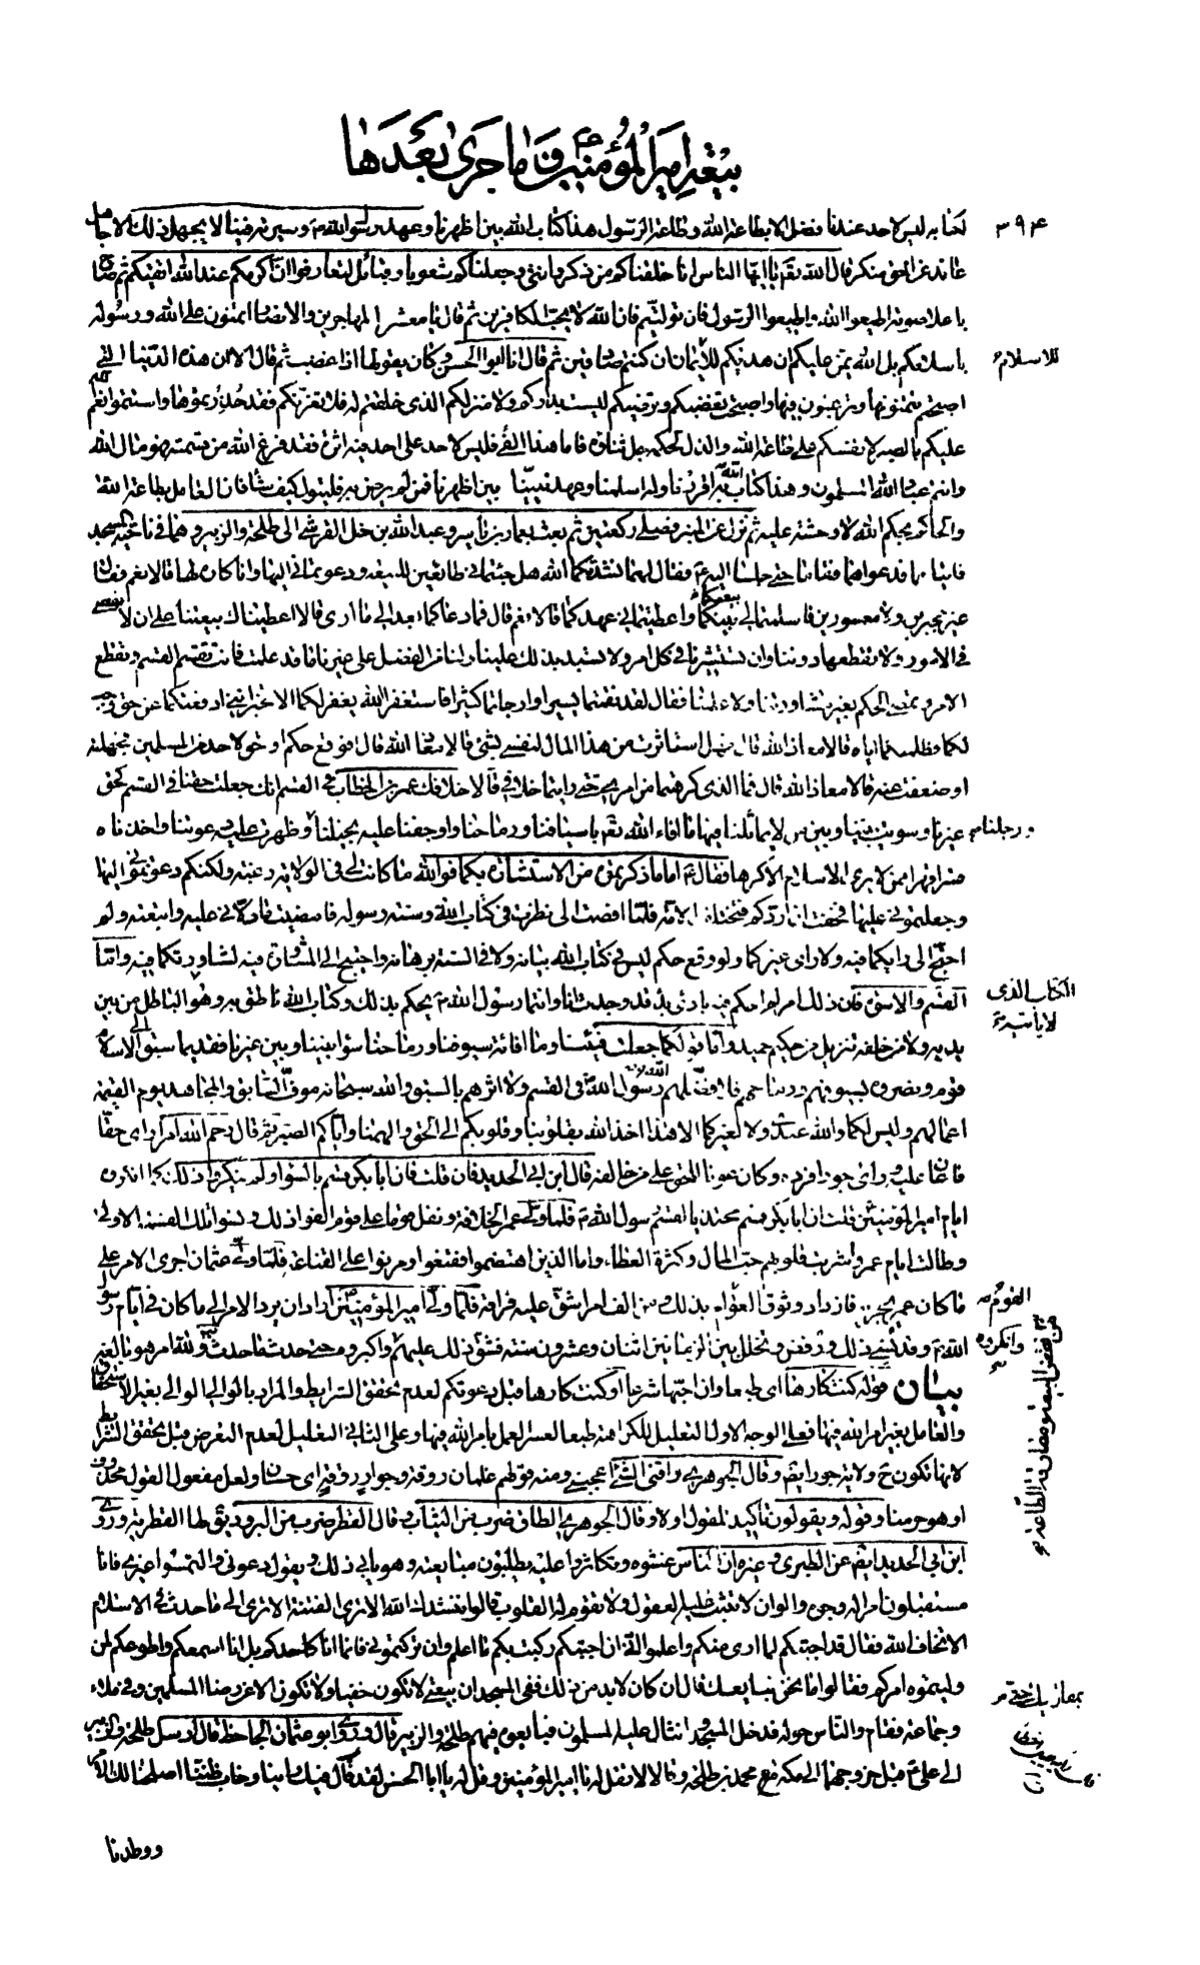 بيعة أمير المؤمنين ع وما جرى بعدها
٣٩٤
لكتابه ليس لاحد عندنا فضل الا بطاعة الله وطاعة الرسول هذا كتاب الله بين اظهرنا وعهد رسول الله ص وسيرته فينا لا يجهل ذلك الا جاهل
عاند عن الحق منكر قال الله تعم يا ايها الناس انا خلقناكم من ذكر وانثى وجعلناكم شعوبا وقبائل لتعارفوا ان اكرمكم عند الله اتقيكم ثم صاح
با علا صوته اطيعوا الله واطيعوا الرسول فان توليتم فان الله لا يحب الكافرين ثم قال يا معشر المهاجرين والانصار اتمنون على الله ورسوله
باسلامكم بل الله يمن عليكم ان هديكم للايمان ان كنتم صادقين ثم قال انا ابو الحسن وكان يقولها اذا غضب ثم قال الا ان هذه الدنيا التي
للاسلام
اصبحتم تتمنونها وترغبون فيها واصبحت تغضبكم وترضيكم ليست بداركم ولا منزلكم الذي خلقتم له فلا تغرنكم فقد حذرتموها واستتموا نعم الله
عليكم بالصبر لانفسكم على طاعة الله والذل لحكمه جل ثناؤه فاما هذا الفئ فليس لاحد على احد فيه اثرة فقد فرغ الله من قسمته فهو مال الله
وانتم عباد الله المسلمون وهذا كتاب الله به اقررنا وله اسلمنا وعهد نبينا بين اظهرنا فمن لم يرض به فليتول كيف شاء فان العامل بطاعة الله
والحاكم بحكم الله لا وحشة عليه ثم نزل عن المنبر فصلى ركعتين ثم بعث بعمار بن ياسر وعبد الله بن خل القرشي الى طلحة والزبير وهما في ناحية المسجد
فاتيا بهما فدعواهما فقاما حتى جلسا اليه ع فقال لهما نشدتكما الله هل جئتماني طائعين للبيعة ودعوتماني اليها وانا كاره لها قالا نعم فقال
غير مجبرين ولا مقسورين فاسلمتما لي بيعتكما واعطيتماني عهدكما قالا نعم قال فما دعاكما بعد الى ما ارى قالا اعطيناك بيعتنا على ان لا تقضي
في الامور ولا تقطعها دوننا وان تستشيرنا في كل امر ولا تستبد بذلك علينا ولنا من الفضل على غيرنا ما قد علمت فانت تقسم القسم وتقطع
الامر وتمضي الحكم بغير مشاورتنا ولا علمنا فقال لقد نقمتما يسيرا وارجاتما كثيرا فاستغفرا الله يغفر لكما الا تخبرانني ادفعتكما عن حق وجب
لكما فظلمتكما اياه قالا معاذ الله قال فهل استاثرت من هذا المال لنفسي بشئ قالا معاذ الله قال افوقع حكم او حق لاحد من المسلمين فجهلته
او ضعفت عنه قالا معاذ الله قال فما الذي كرهتما من امري حتى رايتما خلافي قالا خلافك عمر بن الخطاب في القسم انك جعلت حقنا في القسم كحق
غيرنا وسويت بيننا وبين من لا يماثلنا فيما افاء الله تعم باسيافنا ورماحنا واوجفنا عليه بخيلنا وظهرت عليه دعوتنا واخذناه
ورجلنا
قسرا قهرا ممن لا يرى الاسلام الا كرها فقال ع اما ما ذكرتموه من الاستشارة بكما فوالله ما كانت لي في الولاية رغبة ولكنكم دعوتموني اليها
وجعلتموني عليها فخفت ان اردكم فتختلف الامة فلما افضت الى نظرت في كتاب الله وسنة رسوله فامضيت ما دلاني عليه واتبعته ولم
احتج الى رايكما فيه ولا راى غيركما ولو وقع حكم ليس في كتاب الله بيانه ولا في السنة برهانه واحتيج الى المشاورة فيه لشاورتكما فيه واما
القسم والاسوة فان ذلك امر لم احكم فيه بادئ بدء قد وجدت انا وانتما رسول الله ص يحكم بذلك وكتاب الله ناطق به وهو الكتاب الذي لا ياتيه الباطل من بين
الكتاب الذي
لا ياتيه
يديه ولا من خلفه تنزيل من حكيم حميد واما قولكما جعلت فيئنا وما افائته سيوفنا ورماحنا سواء بيننا وبين غيرنا فقديما سبق الى الاسلام
قوم ونصروه بسيوفهم ورماحهم فلا فضلهم رسول الله في القسم ولا اثرهم بالسبق والله سبحانه موف السابق والمجاهد يوم القيمة
اعمالهم وليس لكما والله عندي ولا لغيركما الا هذا اخذ الله بقلوبنا وقلوبكم الى الحق والهمنا واياكم الصبر ثم قال رحم الله امرأ راى حقا
فاعان عليه وراى جورا فرده وكان عونا للحق على من خالفه قال ابن ابي الحديد فان قلت فان ابا بكر قسم بالسواء ولم ينكروا ذلك كما انكروه
ايام امير المؤمنين قلت ان ابا بكر قسم محتذيا لقسم رسول الله ص فلما ولى عمر الخلافة وفضل قوما على قوم الفوا ذلك ونسوا تلك القسمة الاولى
وطالت ايام عمر واشربت قلوبهم حب المال وكثرة العطاء واما الذين اهتضموا فقنعوا ومرنوا على القناعة فلما ولى عثمان اجرى الامر على
ما كان عمر يجريه فازداد وثوق القوم بذلك ومن الف امرا شق عليه فراقه فلما ولى امير المؤمنين اراد ان يرد الامر الى ما كان في ايام رسول
القوم
الله ص وقد نسي ذلك ورفض وتخلل بين الزمانين اثنان وعشرون سنة فشق ذلك عليهم واكبروه حتى حدث ما حدث ولله امر هو بالغه
وانكروه
من نقض البيعة ومفارقة الطاعة
بيان قوله كنت كارها اى طبعا وان احبها شرعا او كنت كارها قبل دعوتكم لعدم تحقق الشرايط والمراد بالوالي الوالي بغير الاستحقاق
والعامل بغير امر الله فيها فعلى الوجه الاول التعليل للكراهة طبعا لعسر العمل بامر الله فيها وعلى الثاني التعليل لعدم التعرض قبل تحقق الشرايط
لانها تكون ح ولاية جور ايض وقال الجوهري راقني الشئ اعجبني ومنه قولهم غلمان روقة وجوار روقة اى حسان ولعل مفعول القول محذوف
او هو حرمنا وقوله ويقولون تاكيد لقول اولا وقال الجوهري الطاق ضرب من الثياب وقال القطر ضرب من البرود يق لها القطرية وروى
ابن ابي الحديد ايض عن الطبري وغيره ان الناس غشوه وتكاثروا عليه يطلبون مبايعته وهو يابى ذلك ويقول دعوني والتمسوا غيري فانا
مستقبلون امرا له وجوه والوان لا تثبت عليه العقول ولا تقوم له القلوب قالوا ننشدك الله الا ترى الفتنة الا ترى الى ما حدث في الاسلام
الا تخاف الله فقال قد اجبتكم لما ارى منكم واعلموا اني ان اجبتكم ركبت بكم ما اعلم وان تركتموني فانما انا كاحدكم بل انا اسمعكم واطوعكم لمن
وليتموه امركم فقالوا ما نحن بمفارقيك حتى نبايعك قال ان كان لا بد من ذلك ففي المسجد ان بيعتي لا تكون خفيا ولا تكون الا عن رضا المسلمين وفي ملاء
بمفارقيك حتى
وجماعة فقام والناس حوله فدخل المسجد وانثال عليه المسلمون فبايعوه فيهم طلحة والزبير قال وروى ابو عثمان الجاحظ قال ارسل طلحة والزبير
الى علي ع قبل خروجهما الى مكة مع محمد بن طلحة وقالا لا تقل له يا امير المؤمنين وقل له يا ابا الحسن لقد فال فيك راينا وخاب ظننا اصلحنا لك الامر
ووطدنا